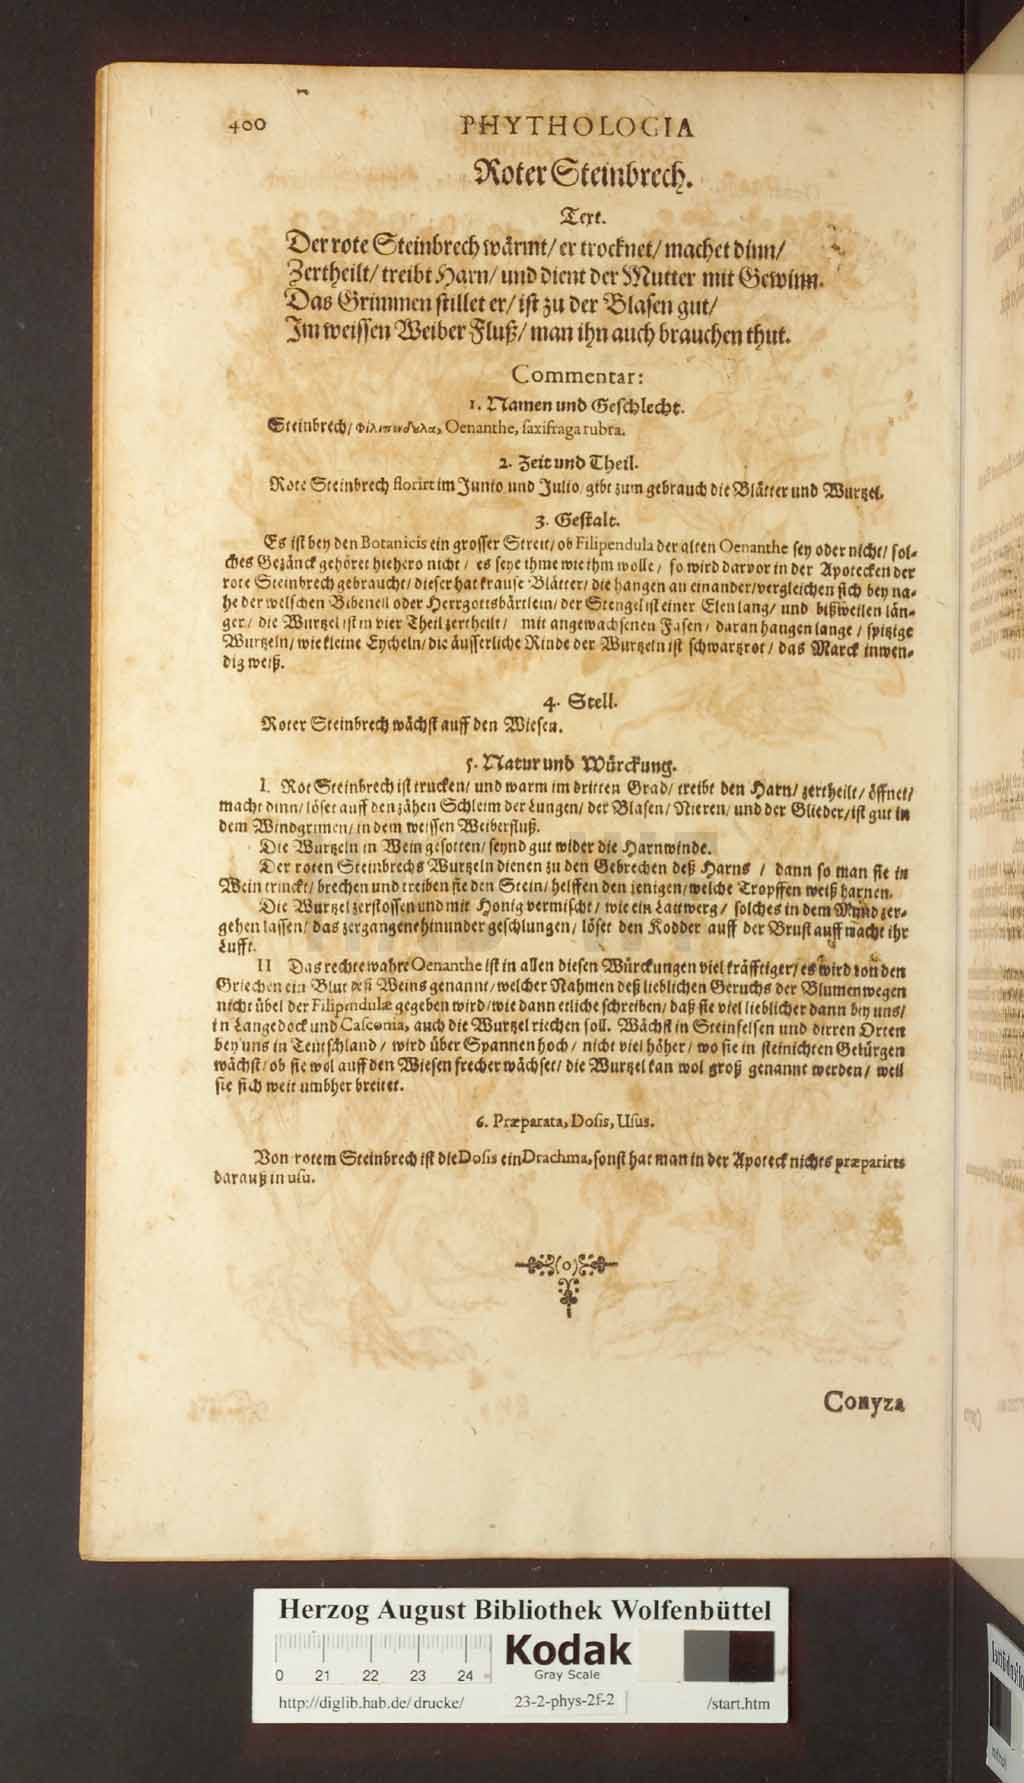 400 PHYTHOLOGIA
Roter Steinbrech.
Text.
Der rote Steinbrech wärmt/ er trocknet/ machet dinn/
Zertheilt/ treibt Harn/ und dient der Mutter mit Gewinn.
Das Grimmen stillet er/ ist zu der Blasen gut/
Im weissen Weiber Fluß/ man ihn auch brauchen thut.
Commentar:
1. Namen und Geschlecht.
Steinbrech/ Oenanthe, saxifraga rubra.
2. Zeit und Theil.
Rote Steinbrech florirt im Junio und Julio/ gibt zum gebrauch die Blätter und Wurtzel.
3. Gestalt.
Es ist bey den Botanicis ein grosser Streit/ ob Filipendula der alten Oenanthe sey oder nicht/ sol-
ches Gezänck gehöret hiehero nicht/ es seye ihme wie ihm wolle/ so wird darvor in der Apotecken der
rote Steinbrech gebraucht/ dieser hat krause Blätter/ die hangen an einander/ vergleichen sich bey na-
he der welschen Bibenell oder Herrgottsbärtlein/ der Stengel ist einer Elen lang/ und bißweilen län-
ger/ die Wurtzel ist in vier Theil zertheilt/ mit angewachsenen Fasen/ daran hangen lange/ spitzige
Wurtzeln/ wie kleine Eycheln/ die äusserliche Rinde der Wurtzeln ist schwartzrot/ das Marck inwen-
dig weiß.
4. Stell.
Roter Steinbrech wächst auff den Wiesen.
5. Natur und Würckung.
I. Rot Steinbrech ist trucken/ und warm im dritten Grad/ treibt den Harn/ zertheilt/ öffnet/
macht dinn/ löset auff den zähen Schleim der Lungen/ der Blasen/ Nieren/ und der Glieder/ ist gut in
dem Windgrimen/ in dem weissen Weiberfluß.
Die Wurtzeln in Wein gesotten/ seynd gut wider die Harnwinde.
Der roten Steinbrechs Wurtzeln dienen zu den Gebrechen deß Harns/ dann so man sie in
Wein trinckt/ brechen und treiben sie den Stein/ helffen den jenigen/ welche Tropffen weiß harnen.
Die Wurtzel zerstossen und mit Honig vermischt/ wie ein Lattwerg/ solches in dem Mund zer-
gehen lassen/ das zergangene hinunder geschlungen/ löset den Kodder auff der Brust auff macht ihr
Lufft.
II Das rechte wahre Oenanthe ist in allen diesen Würckungen viel kräfftiger/ es wird von den
Griechen ein Blut deß Weins genannt/ welcher Nahmen deß lieblichen Geruchs der Blumen wegen
nicht übel der Filipendulæ gegeben wird/ wie dann etliche schreiben/ daß sie viel lieblicher dann bey uns/
in Langedock und Casconia, auch die Wurtzel riechen soll. Wächst in Steinfelsen und dirren Orten
bey uns in Teutschland/ wird über Spannen hoch/ nicht viel höher/ wo sie in steinichten Gebürgen
wächst/ ob sie wol auff den Wiesen frecher wächset/ die Wurtzel kan wol groß genannt werden/ weil
sie sich weit umbher breitet.
6. Præparata, Dosis, Usus.
Von rotem Steinbrech ist die Dosis ein Drachma, sonst hat man in der Apoteck nichts præparirts
darauß in usu.
(o)
Conyza
Herzog August Bibliothek Wolfenbüttel
Kodak
Gray Scale
0 21 22 23 24
http://diglib.hab.de/drucke/ 23-2-phys-2f-2 /start.htm